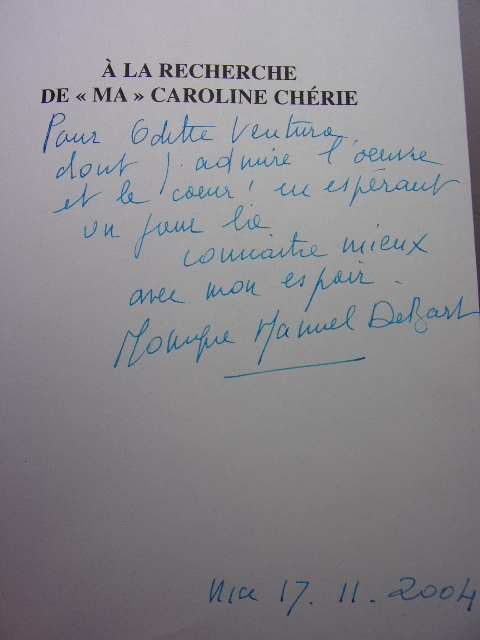 À LA RECHERCHE
DE « MA » CAROLINE CHÉRIE
Pour Odette Ventura,
dont j'admire l'oeuvre
et le coeur ! en espérant
un jour la
connaître mieux
avec mon espoir.
Monique Manuel DeBart
Nice 17. 11. 2004